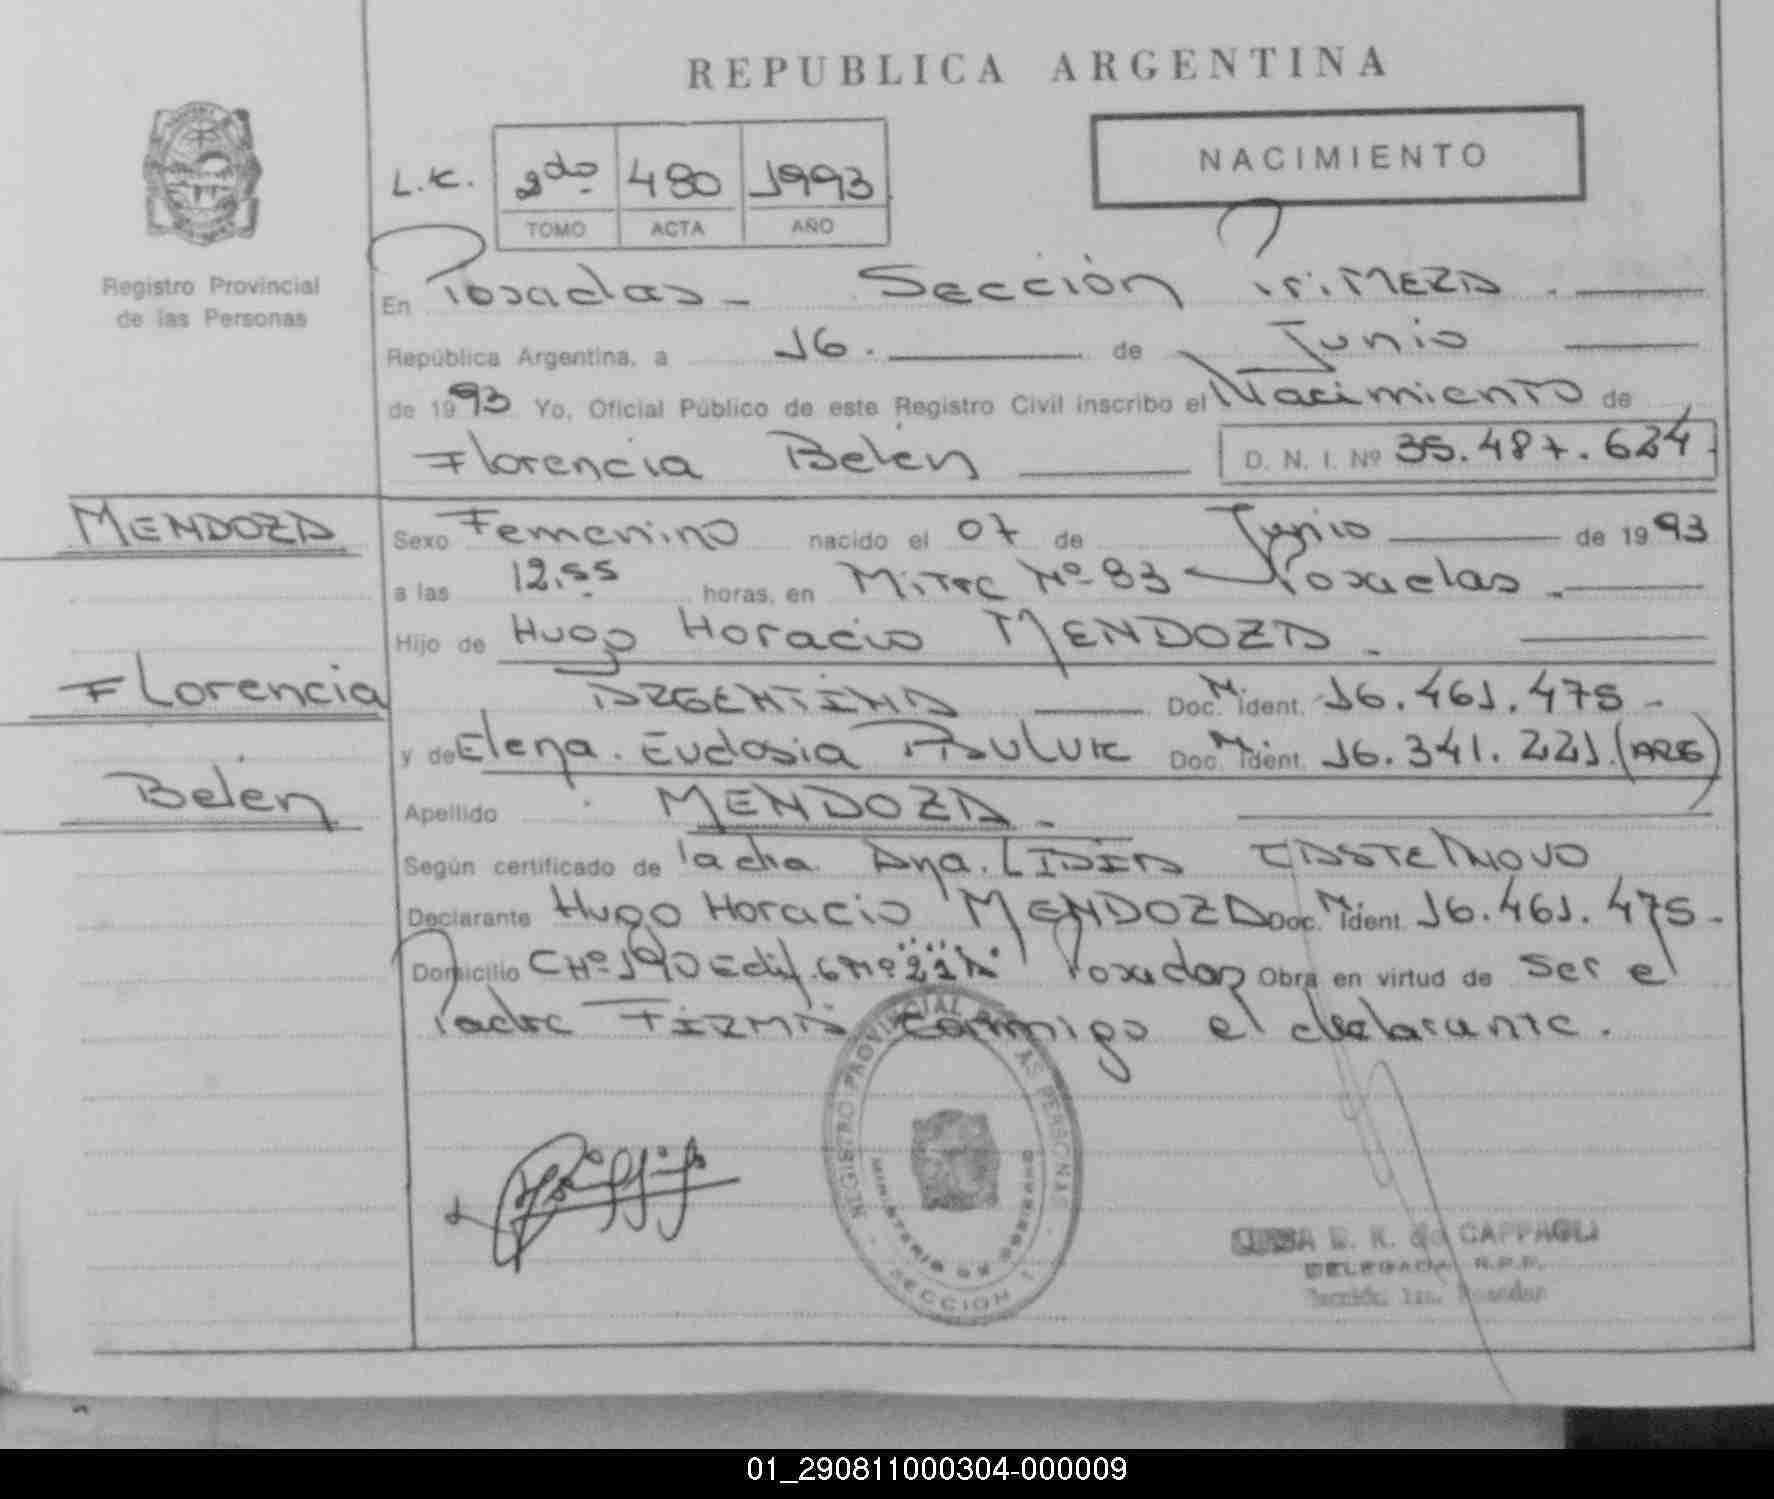 REPUBLICA ARGENTINA
NACIMIENTO
L.K. 2do 480 1993
TOMO ACTA AÑO
Registro Provincial
de las Personas
En Posadas - Sección Primera.
República Argentina, a 16. de Junio
de 1993 Yo, Oficial Público de este Registro Civil inscribo el Nacimiento de
Florencia Belén D. N. I. Nº 35.487.624
MENDOZA
Sexo Femenino nacido el 07 de Junio de 1993
a las 12.55 horas, en Mitre Nº 83 - Posadas.
Hijo de Hugo Horacio MENDOZA.
Florencia
ARGENTINA Doc. M. Ident. 16.461.475 -
y de Elena. Eudosia Doc. M. Ident. 16.341.221. (ARG)
Belén
Apellido MENDOZA -
Según certificado de la cha. Ana. LIDIA CASTELNOVO
Declarante Hugo Horacio MENDOZA Doc. M. Ident. 16.461.475 -
Domicilio CHº 190 Edif. 6 Posadas Obra en virtud de ser el
Padre FIRMA conmigo el declarante.
REGISTRO PROVINCIAL DE LAS PERSONAS
MINISTERIO DE GOBIERNO
SECCION 1
R. de CAPPAGLI
DELEGADA R.P.P.
Sección 1ra. Posadas
01_290811000304-000009